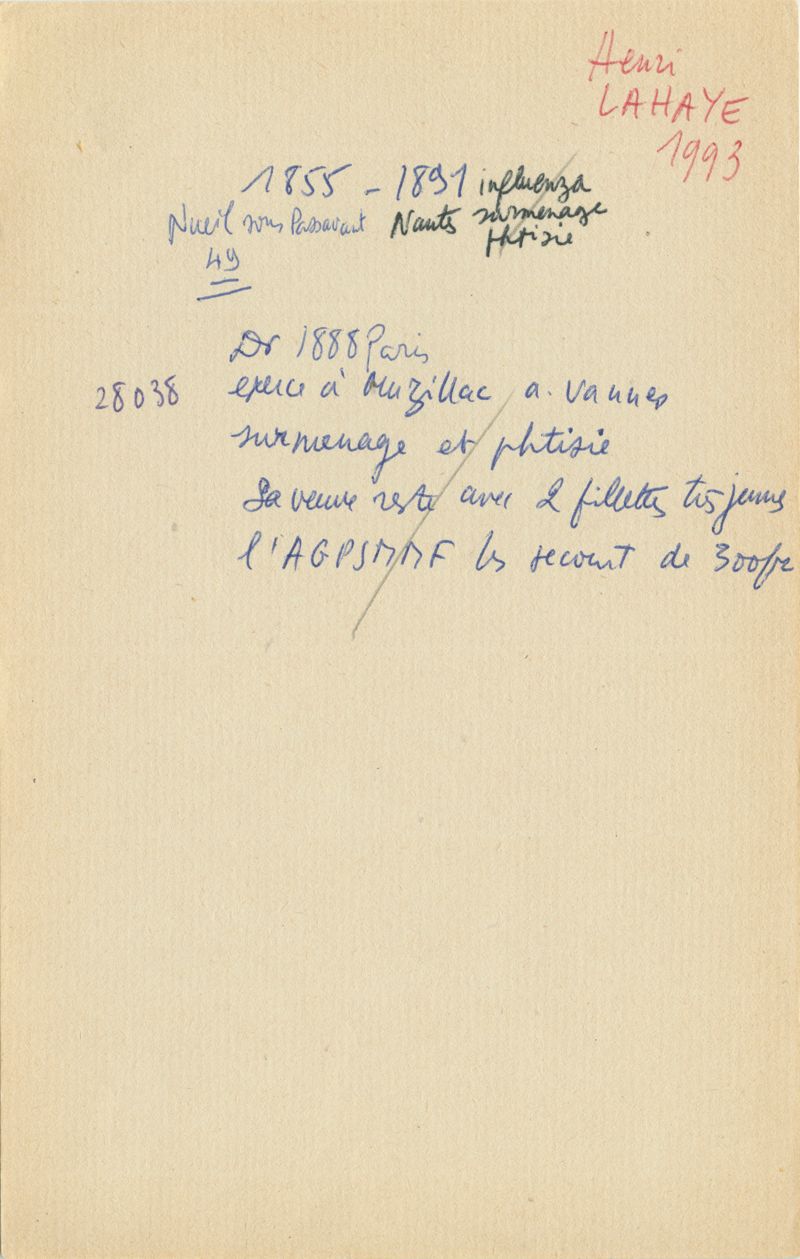 Henri
LAHAYE
1993
1855 - 1891 influenza
Nueil sous Passavant Nants surmenage
phtisie
49
Dr 1888 Paris
28038 exerce à Muzillac a. Vannes
surmenage et phtisie
Sa veuve reste avec 2 fillettes très jeunes
l'AGPSMMF les secourt de 300fr